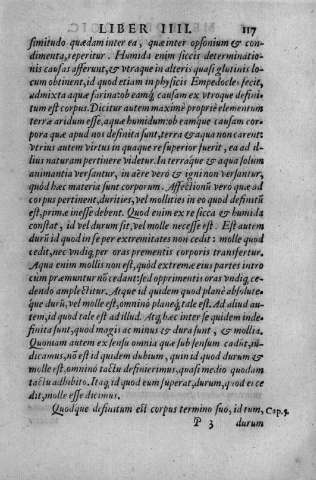 LIBER IIII. 117
similitudo quædam inter ea, quæ inter opsonium & con-
dimenta, reperitur. Humida enim siccis determinatio-
nis causas afferunt, & vtraque in alteris quasi glutinis lo-
cum obtinent, id quod etiam in physicis Empedocles fecit,
admixta aquæ farina: ob eamq́ causam ex vtroque defini-
tum est corpus. Dicitur autem maximè propriè elementum
terræ aridum esse, aquæ humidum: ob eamque causam cor-
pora quæ apud nos definita sunt, terra & aqua non carent:
vtrius autem virtus in quaque re superior fuerit, ea ad il-
lius naturam pertinere videtur. In terráque & aqua solum
animantia versantur, in aëre verò & igni non versantur,
quòd hæc materia sunt corporum. Affectionũ vero quæ ad
corpus pertinent, durities, vel mollities in eo quod definitũ
est, primæ inesse debent. Quod enim ex re sicca & humida
constat, id vel durum sit, vel molle necesse est. Est autem
durũ id quod in se per extremitates non cedit: molle quod
cedit, nec vndiq; per oras prementis corporis transfertur.
Aqua enim mollis non est, quòd extremæ eius partes intro
cum præmuntur nõ cedant: sed opprimentis oras vndiq; ce-
dendo amplectitur. Atque id quidem quod planè absolute-
que durũ, vel molle est, omninò planeq́; tale est. Ad aliud au-
tem, id quod tale est ad illud. Atq; hæc inter se quidem inde-
finita sunt, quòd magis ac minus & dura sunt, & mollia.
Quoniam autem ex sensu omnia quæ sub sensum cadũt, iu-
dicamus, nõ est id quidem dubium, quin id quod durum &
molle est, omnino tactu definierimus, quasi medio quodam
tactu adhibito. Itaq; id quod eum superat, durum, quod ei ce
dit, molle esse dicimus.
Quodque definitum est corpus termino suo, id tum, Cap. 5.
P 3 durum